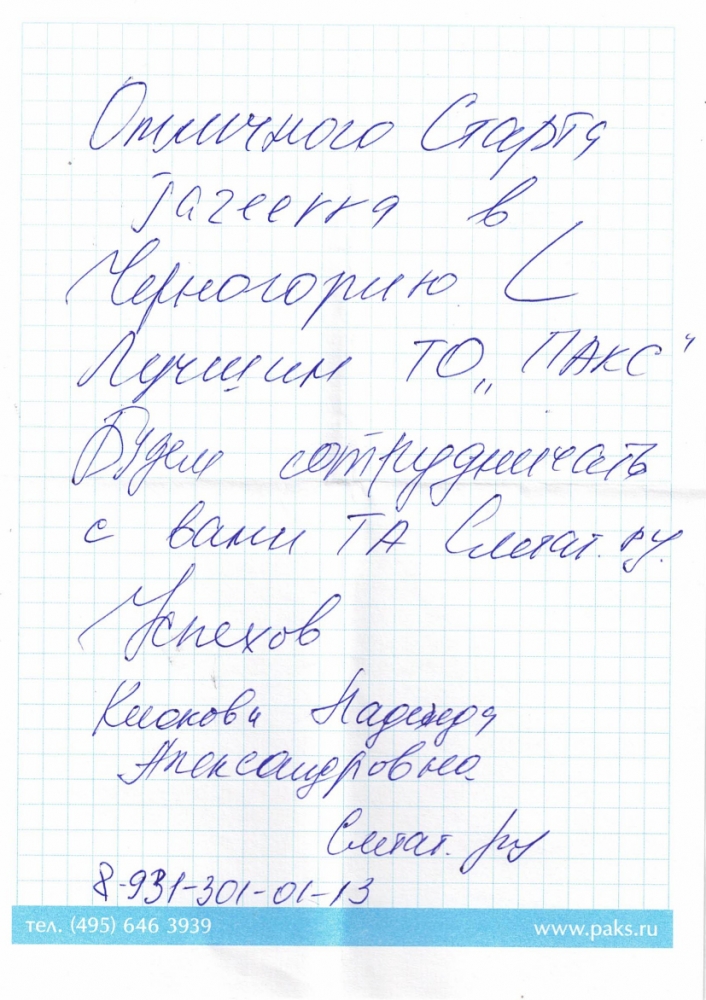 Отличного Старта
в
Черногорию С
Лучшим ТО „ПАКС“
Будем сотрудничать
с вами ТА Слетат. ру.
Успехов
Надежда
Александровна
Слетат. ру
8-931-301-01-13
тел. (495) 646 3939 www.paks.ru